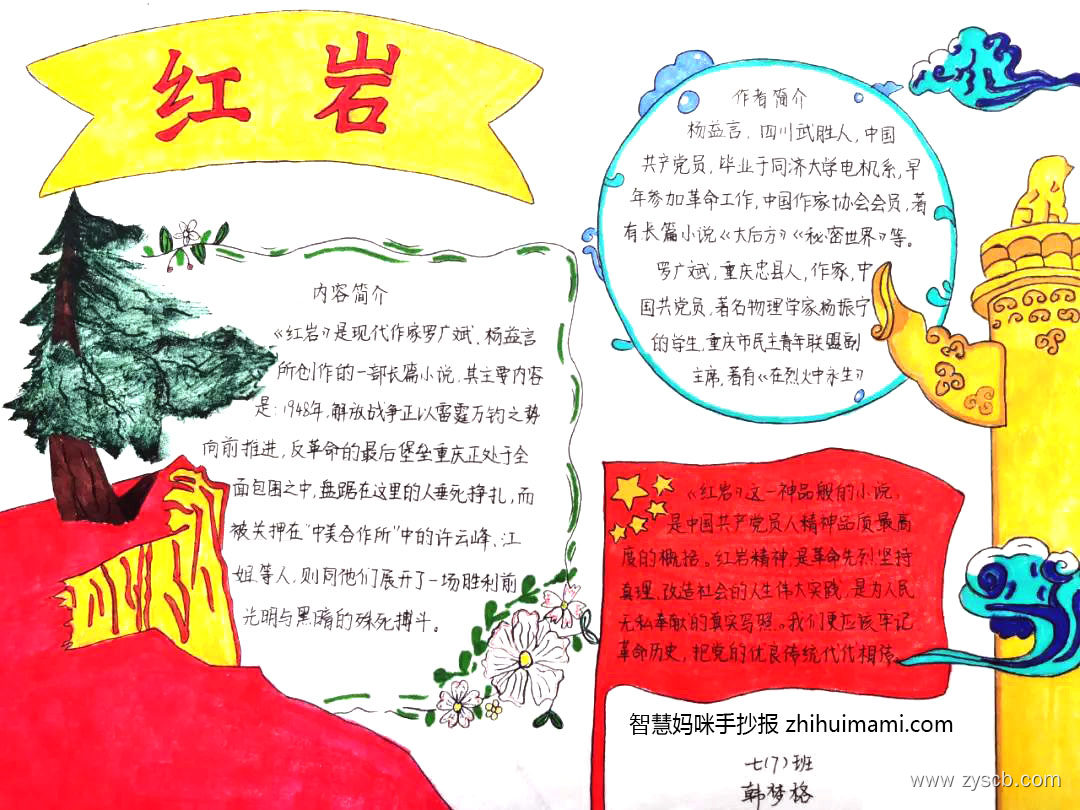 红 岩
内容简介
《红岩》是现代作家罗广斌、杨益言
所创作的一部长篇小说。其主要内容
是:1948年,解放战争正以雷霆万钧之势
向前推进,反革命的最后堡垒重庆正处于全
面包围之中,盘踞在这里的人垂死挣扎,而
被关押在“中美合作所”中的许云峰、江
姐等人,则同他们展开了一场胜利前
光明与黑暗的殊死搏斗。
作者简介
杨益言,四川武胜人,中国
共产党员,毕业于同济大学电机系,早
年参加革命工作,中国作家协会会员,著
有长篇小说《大后方》《秘密世界》等。
罗广斌,重庆忠县人,作家,中
国共党员,著名物理学家杨振宁
的学生,重庆市民主青年联盟副
主席,著有《在烈火中永生》
《红岩》这一神品般的小说,
是中国共产党员人精神品质最高
度的概括。红岩精神,是革命先烈坚持
真理、改造社会的人生伟大实践,是为人民
无私奉献的真实写照。我们更应该牢记
革命历史,把党的优良传统代代相传。
智慧妈咪手抄报 zhihuimami.com
七(7)班
韩梦格
www.zyscb.com